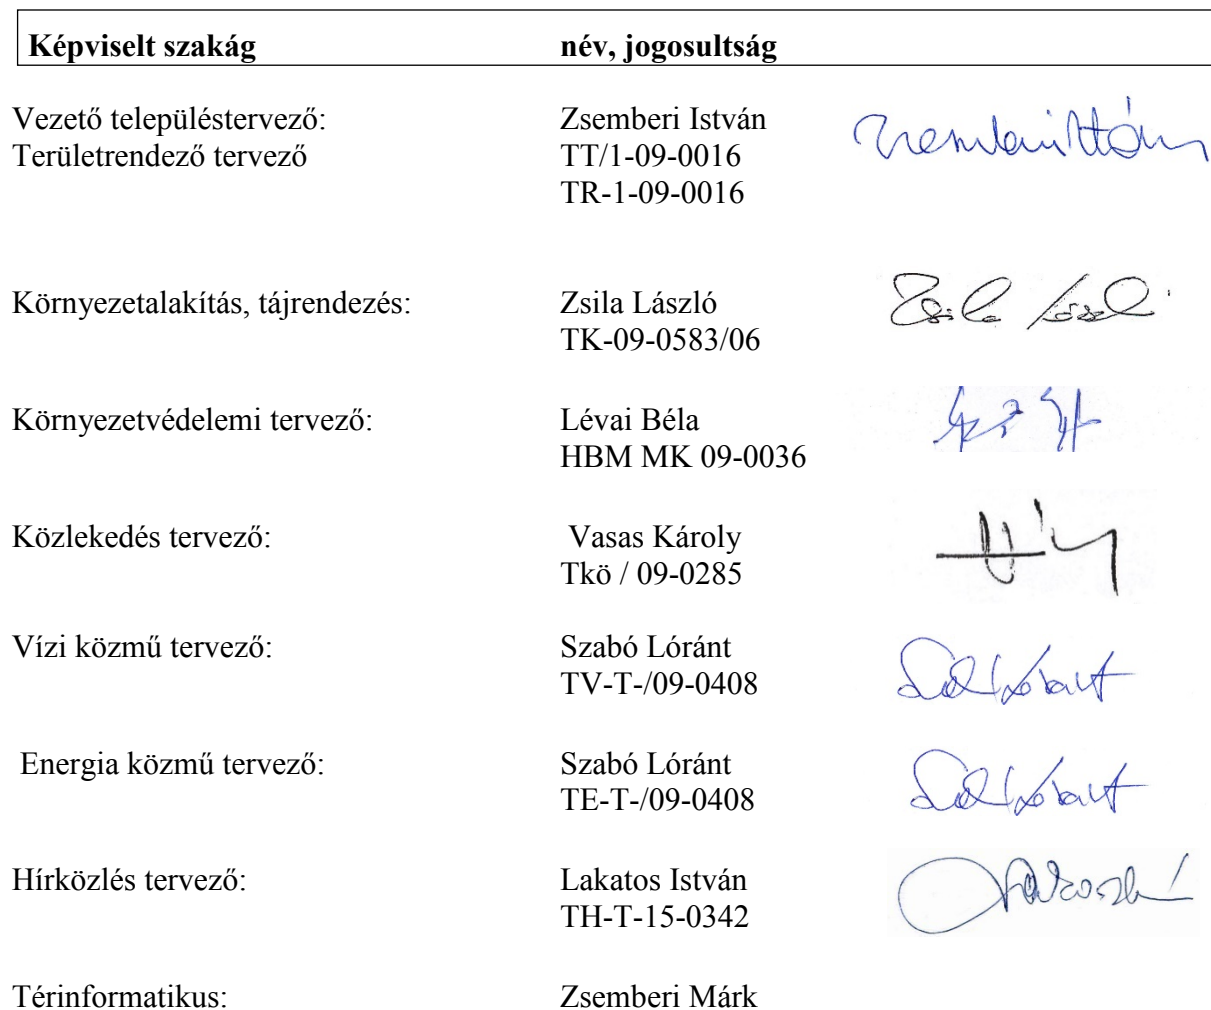 Képviselt szakág név, jogosultság
Vezető településtervező: Zsemberi István
Területrendező tervező TT/1-09-0016
TR-1-09-0016
Környezetalakítás, tájrendezés: Zsila László
TK-09-0583/06
Környezetvédelemi tervező: Lévai Béla
HBM MK 09-0036
Közlekedés tervező: Vasas Károly
Tkö / 09-0285
Vízi közmű tervező: Szabó Lóránt
TV-T-/09-0408
Energia közmű tervező: Szabó Lóránt
TE-T-/09-0408
Hírközlés tervező: Lakatos István
TH-T-15-0342
Térinformatikus: Zsemberi Márk